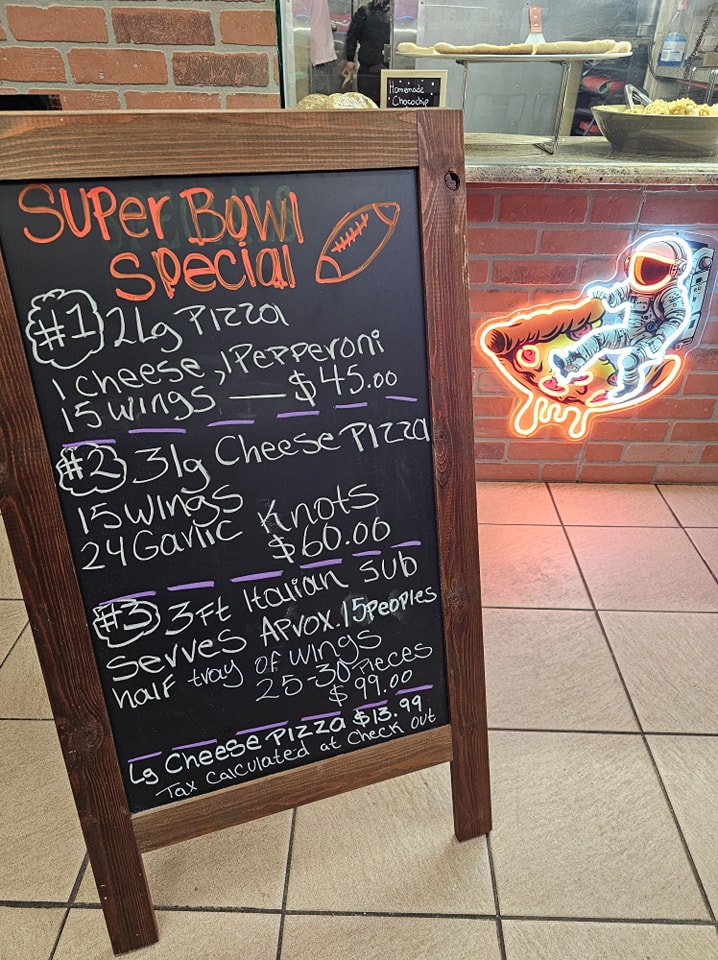 Homemade
Chocochip
Super Bowl
Special
#1 2 Lg Pizza
1 cheese, 1 Pepperoni
15 wings — $45.00
#2 3 lg Cheese Pizza
15 wings
24 Garlic Knots
$60.00
#3 3 Ft Italian Sub
serves Aprox. 15 peoples
half tray of wings
25-30 Pieces
$99.00
Lg Cheese Pizza $13.99
Tax calculated at check out